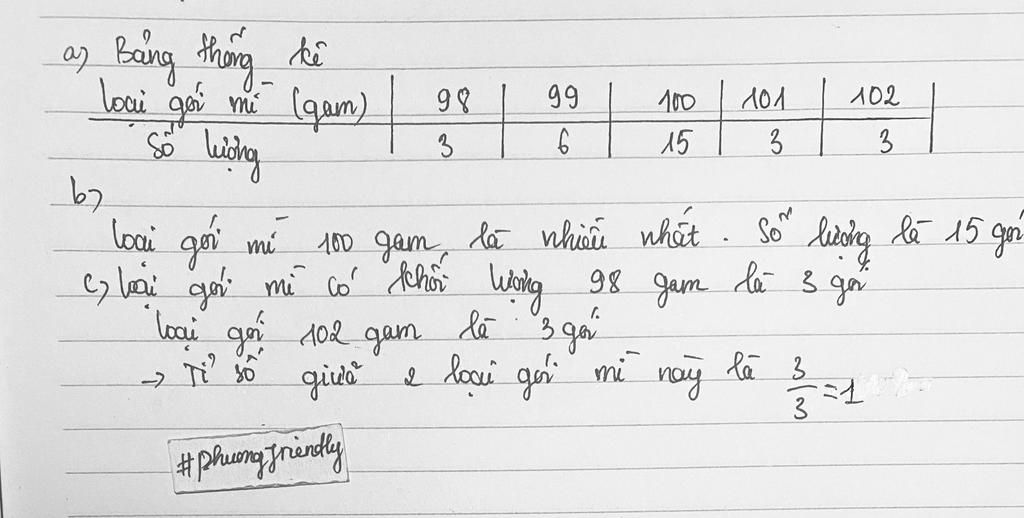 a) Bảng thống kê
loại gói mì (gam) | 98 | 99 | 100 | 101 | 102
Số lượng | 3 | 6 | 15 | 3 | 3
b)
loại gói mì 100 gam là nhiều nhất. Số lượng là 15 gói
c) loại gói mì có khối lượng 98 gam là 3 gói
loại gói 102 gam là 3 gói
→ Tỉ số giữa 2 loại gói mì này là 3/3 = 1
#phuongfriendly